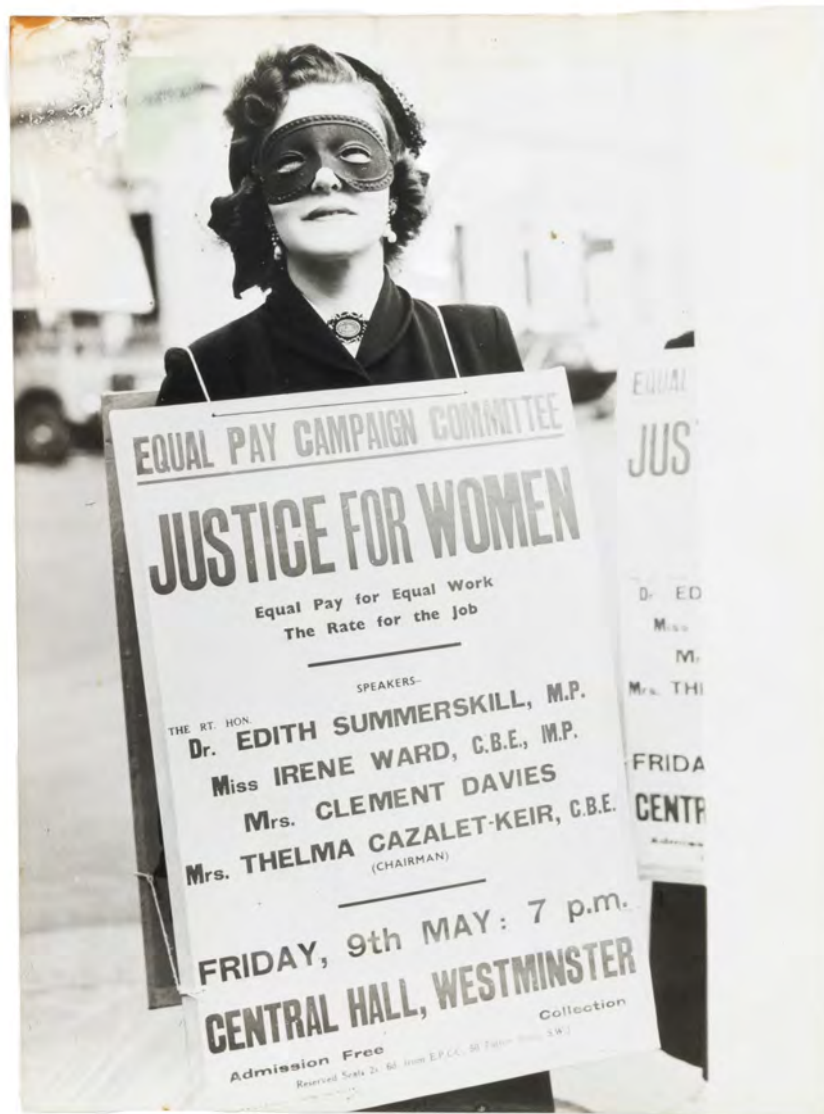 EQUAL PAY CAMPAIGN COMMITTEE
JUSTICE FOR WOMEN
Equal Pay for Equal Work
The Rate for the Job
SPEAKERS–
THE RT. HON.
Dr. EDITH SUMMERSKILL, M.P.
Miss IRENE WARD, C.B.E., M.P.
Mrs. CLEMENT DAVIES
Mrs. THELMA CAZALET-KEIR, C.B.E.
(CHAIRMAN)
FRIDAY, 9th MAY: 7 p.m.
CENTRAL HALL, WESTMINSTER
Admission Free Collection
Reserved Seats 2s. 6d. from E.P.C.C. S.W.1
EQUAL
JUS
Dr. ED
Miss
M
Mrs. THE
FRIDA
CENTR